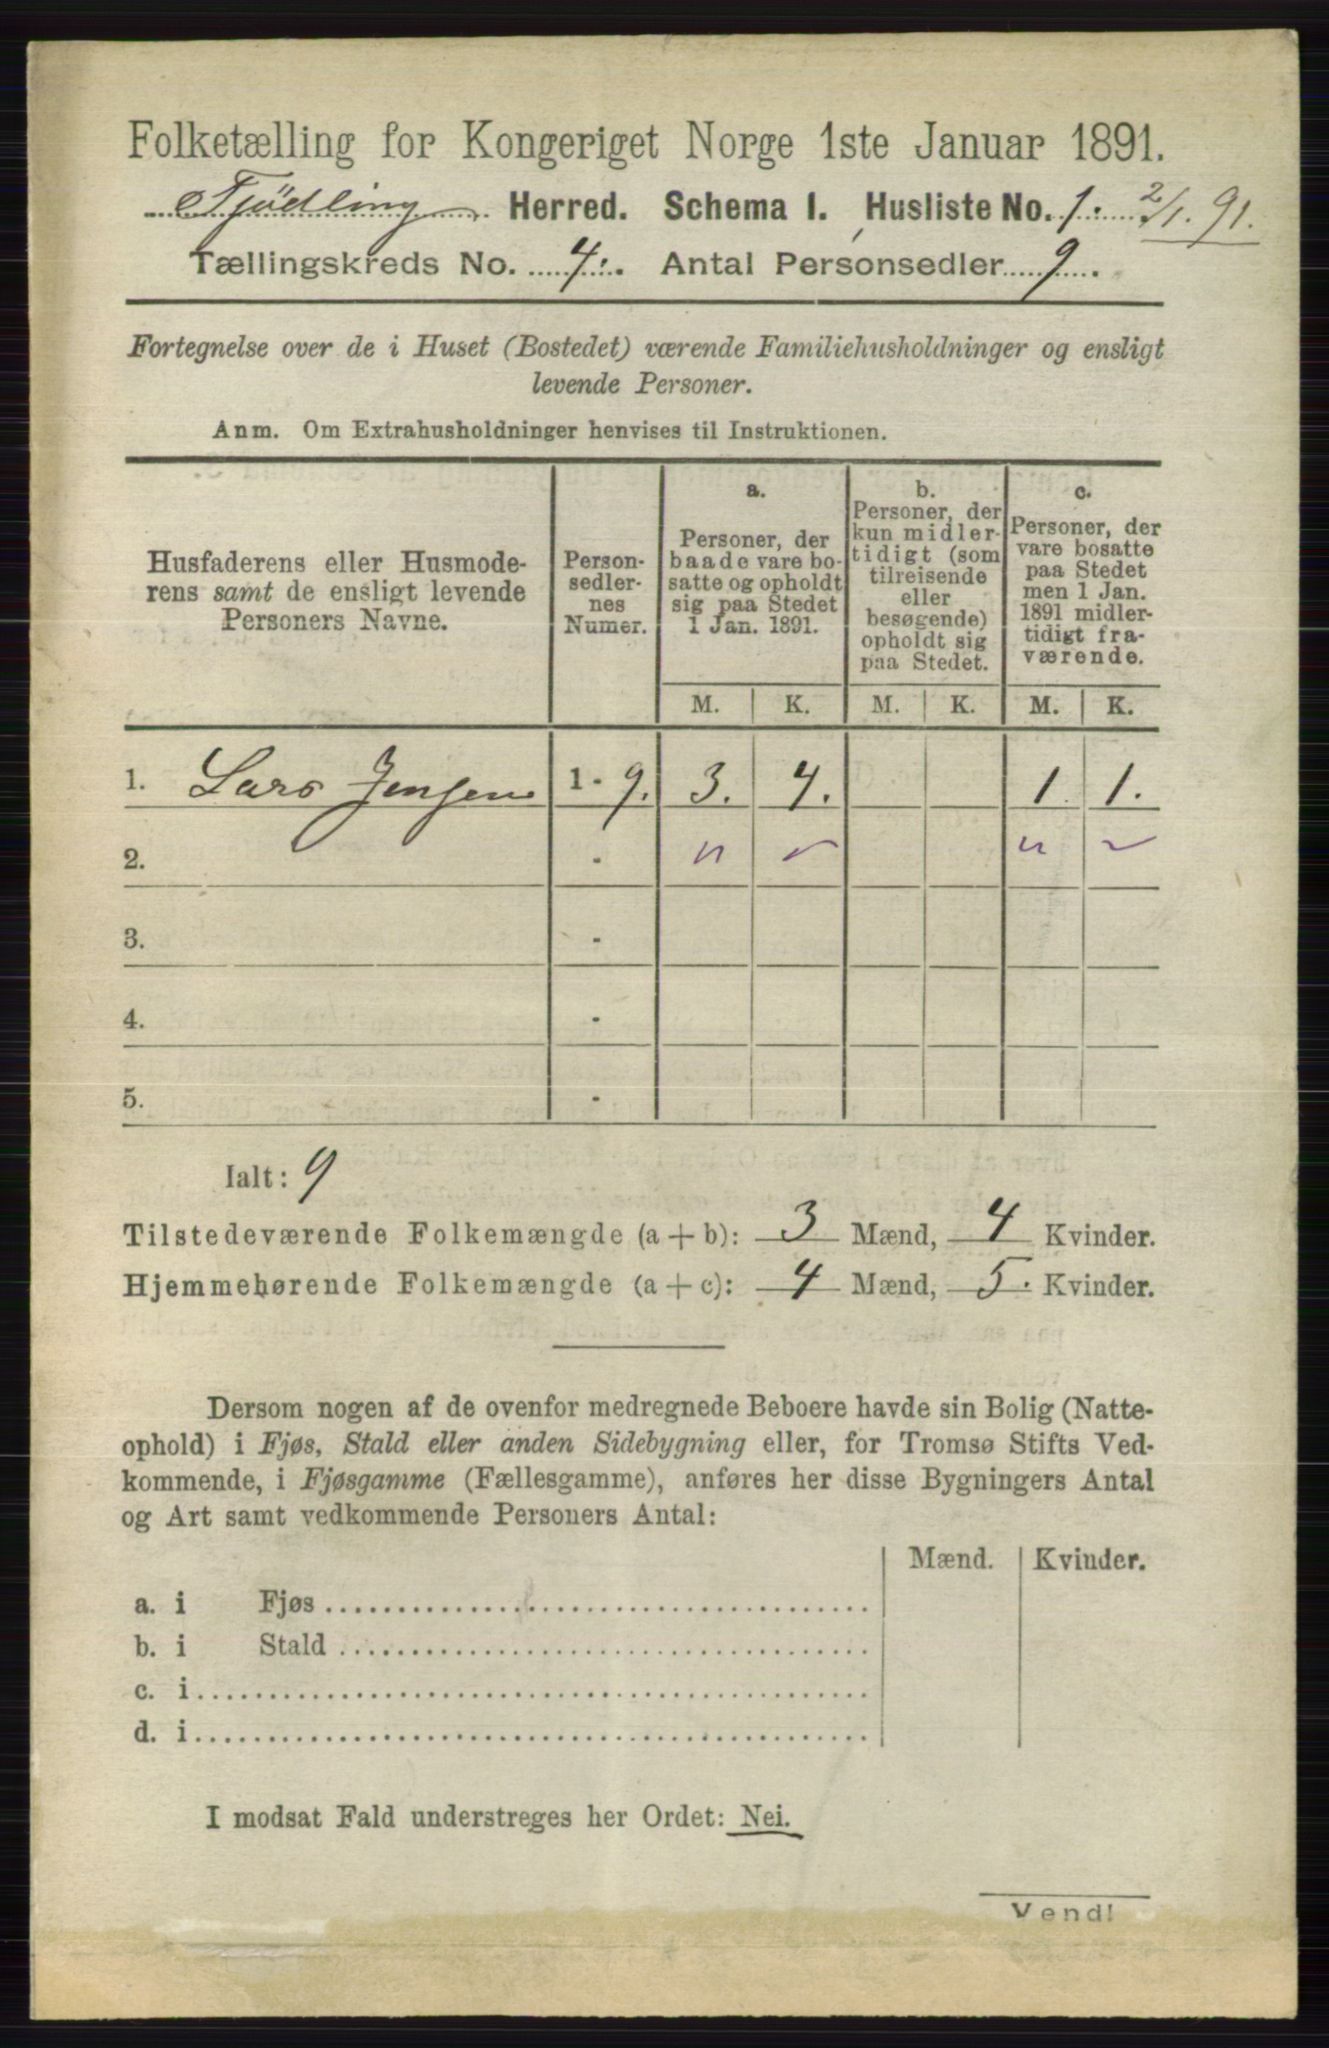 Folketælling for Kongeriget Norge 1ste Januar 1891.
Tjödling Herred. Schema I. Husliste No. 1. 2/1. 91.
Tællingskreds No. 4. Antal Personsedler 9.
Fortegnelse over de i Huset (Bostedet) værende Familiehusholdninger og ensligt
levende Personer.
Anm. Om Extrahusholdninger henvises til Instruktionen.
Husfaderens eller Husmode-
rens samt de ensligt levende
Personers Navne.
Person-
sedler-
nes
Numer.
a.
Personer, der
baade vare bo-
satte og opholdt
sig paa Stedet
1 Jan. 1891.
b.
Personer, der
kun midler-
tidigt (som
tilreisende
eller
besøgende)
opholdt sig
paa Stedet.
c.
Personer, der
vare bosatte
paa Stedet
men 1 Jan.
1891 midler-
tidigt fra-
værende.
M. K. M. K. M. K.
1. Lars Jensen 1 - 9. 3. 4. 1. 1.
2. -
3. -
4. -
5. -
Ialt: 9
Tilstedeværende Folkemængde (a + b): 3 Mænd, 4 Kvinder.
Hjemmehørende Folkemængde (a + c): 4 Mænd, 5. Kvinder.
Dersom nogen af de ovenfor medregnede Beboere havde sin Bolig (Natte-
ophold) i Fjøs, Stald eller anden Sidebygning eller, for Tromsø Stifts Ved-
kommende, i Fjøsgamme (Fællesgamme), anføres her disse Bygningers Antal
og Art samt vedkommende Personers Antal:
Mænd. Kvinder.
a. i Fjøs
b. i Stald
c. i
d. i
I modsat Fald understreges her Ordet: Nei.
Vend!